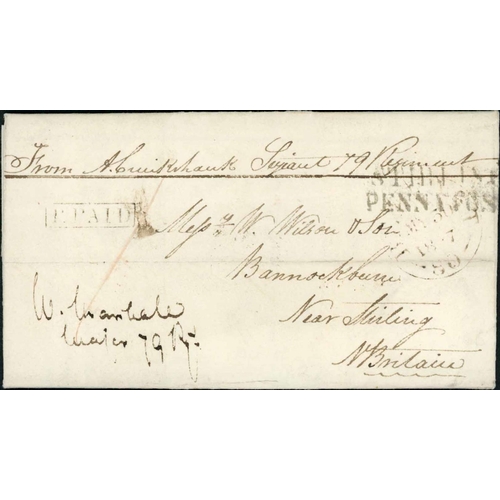 From A. Cruikshank Serjant 79 Regiment
STIRLING
PENNY POST
P.PAID
Messrs W. Wilson & Son
Bannockburn
Near Stirling
N Britain
W. Marshall
Major 79 Rt